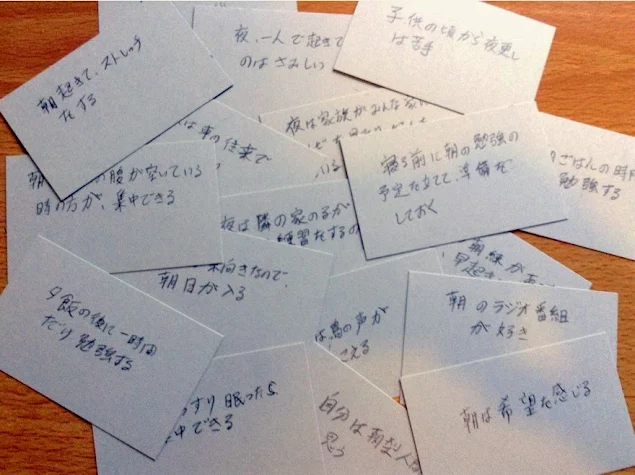 朝起きて、ストレッチ
をする
夜、一人で起きて
のは さみしい
子供の頃から夜更し
は苦手
は車の往来で
夜は家族がみんな家に
いる
寝る前に朝の勉強の
予定を立てて、準備を
しておく
ごはんの時
勉強する
朝
腹が空いている
時の方が、集中できる
夜は隣の家の
練習をするの
木向きなので、
朝日が入る
朝練が
早起き
夕飯の後に一時間
だけ勉強する
は鳥の声が
こえる
朝のラジオ番組
が好き
すり眠ったら
中できる
自分は朝型人
思う
朝は希望を感じる